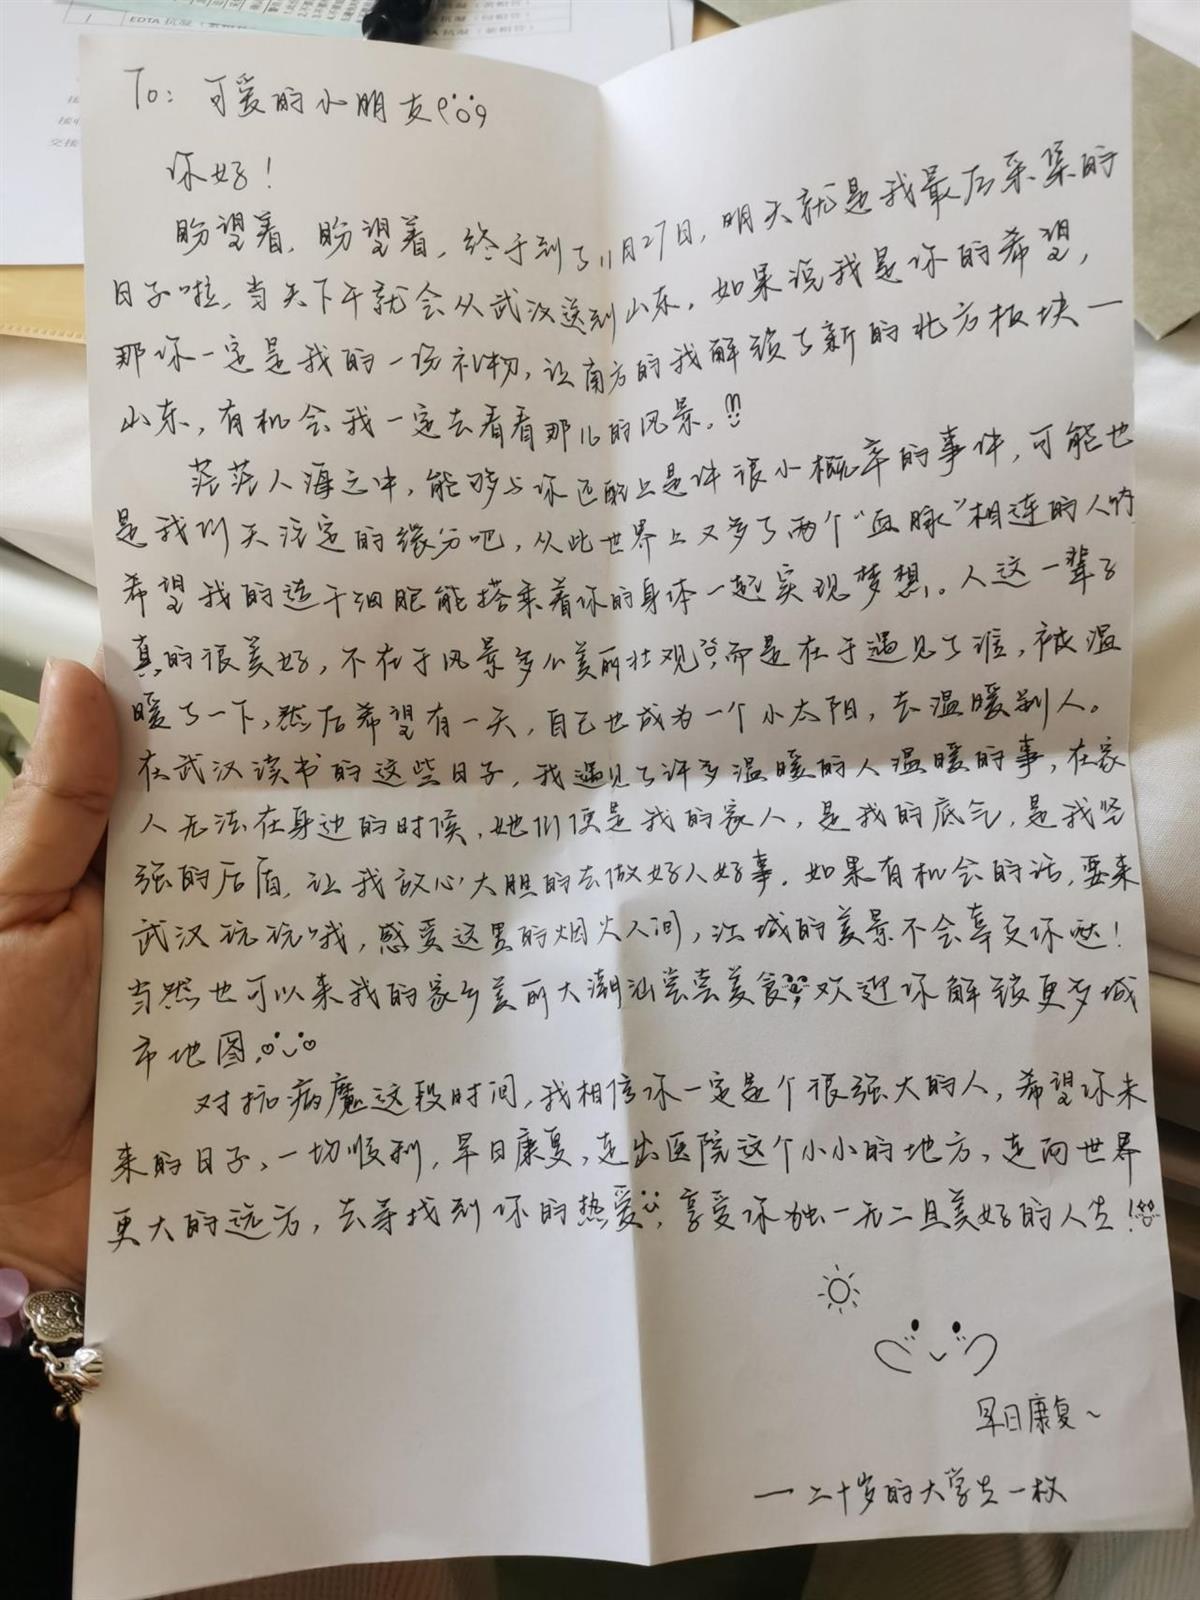 EDTA 抗凝（紫帽管）
To: 可爱的小朋友
你好！
盼望着，盼望着，终于到了11月27日，明天就是我最后采集的
日子啦，当天下午就会从武汉送到山东，如果说我是你的希望，
那你一定是我的一份礼物，让南方的我解锁了新的北方板块—
山东，有机会我一定去看看那儿的风景。
茫茫人海之中，能够与你匹配上是件很小概率的事件，可能也
是我们天注定的缘分吧，从此世界上又多了两个“血脉”相连的人
希望我的造干细胞能搭乘着你的身体一起实现梦想。人这一辈子
真的很美好，不在于风景多么美丽壮观，而是在于遇见了谁，被温
暖了一下，然后希望有一天，自己也成为一个小太阳，去温暖别人。
在武汉读书的这些日子，我遇见了许多温暖的人温暖的事，在家
人无法在身边的时候，她们便是我的家人，是我的底气，是我坚
强的后盾，让我放心大胆的去做好人好事。如果有机会的话，要来
武汉玩玩哦，感受这里的烟火人间，江城的美景不会辜负你哒！
当然也可以来我的家乡美丽大潮汕尝尝美食，欢迎你解锁更多城
市地图。
对抗病魔这段时间，我相信你一定是个很强大的人，希望你未
来的日子，一切顺利，早日康复，走出医院这个小小的地方，走向世界
更大的远方，去寻找到你的热爱，享受你独一无二且美好的人生！
早日康复~
一二十岁的大学生一枚